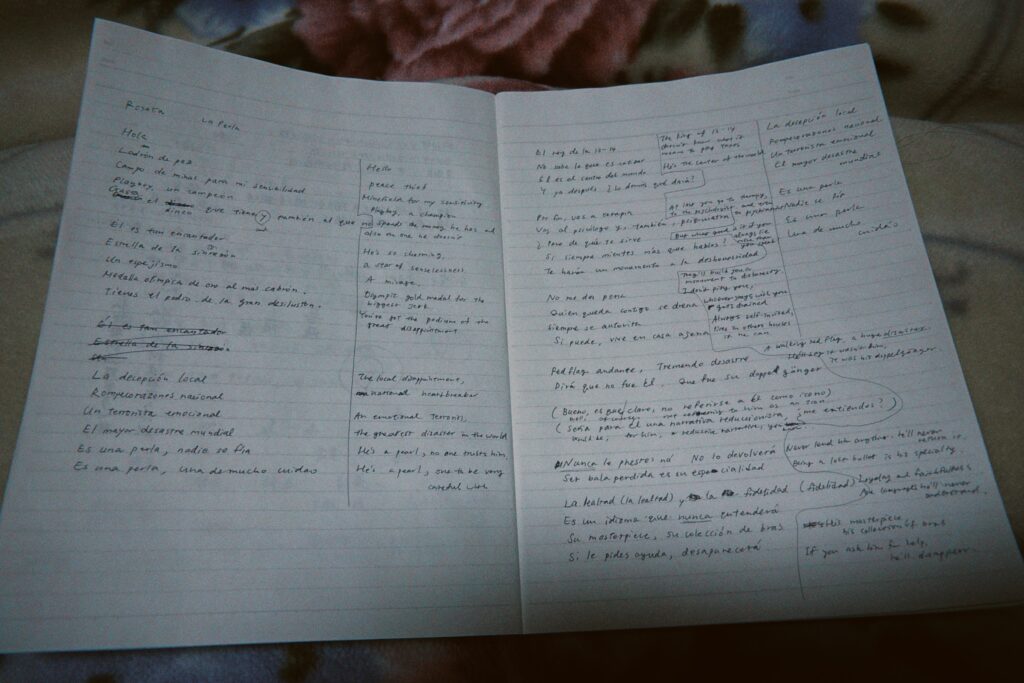 Rosalía La Perla
Hola
Ladrón de paz
Campo de minas para mi sensibilidad
Playboy, un campeón
Gasta el dinero que tiene y también el que no
Él es tan encantador
Estrella de la sinrazón
Un espejismo
Medalla olímpica de oro al más cabrón.
Tienes el podio de la gran desilusión.
Él es tan encantado
Estrella de la sinrazón
La decepción local
Rompecorazones nacional
Un terrorista emocional
El mayor desastre mundial
Es una perla, nadie se fía
Es una perla, una de mucho cuidao
Hello
peace thief
Minefield for my sensitivity
Playboy, a champion
spends the money he has and
also the one he doesn't
He's so charming,
a star of senselessness
A mirage,
Olympic gold medal for the
biggest jerk
You've got the podium of the
great disappointment
The local disappointment,
national heartbreaker
An emotional terrorist,
the greatest disaster in the world
He's a pearl, no one trusts him,
He's a pearl, one to be very
careful with
El rey de la 13-14.
No sabe lo que es cotizar
Él es el centro del mundo
Y ya después ¿Lo demás qué dará?
Por fin, vas a terapia
Vas al psicólogo y, también, psiquiatra
¿Pero de qué te sirve
Si siempre mientes más que hablas?
Te harán un monumento a la deshonestidad
No me das pena
Quien queda contigo se drena
Siempre se autoinvita
Si puede, vive en casa ajena
Red flag andante, Tremendo desastre
Dirá que no fue él, Que fue su doppelgänger
(Bueno, es que, claro, no referirse a él como icono)
(Sería para él una narrativa reduccionista, ¿me entiendes?)
Nunca le prestes na' No lo devolverá
Ser bala perdida es su especialidad
La lealtad (la lealtad) y la fidelidad (fidelidad)
Es un idioma que nunca entenderá
Su masterpiece, su colección de bras
Si le pides ayuda, desaparecerá
The king of 13-14
doesn't know what it
means to pay taxes
He's the center of the world
At last you go to therapy,
to the psychologist and even
to psychiatrist
But what good is it if you
always lie
more than
you speak
They'll build you a
monument to dishonesty
I don't pity you,
whoever stays with you
gets drained
Always self-invited,
lives in others houses
if he can
A walking red flag, a huge disaster.
He'll say it wasn't him,
It was his doppelgänger.
Well, of course, not referring to him as an icon
would be, for him, a reductive narrative, you know
Never lend him anything. He'll never
return it.
Being a lost bullet is his specialty
Loyalty and faithfulness
are languages he'll never
understand.
His masterpiece
his collection of bras
If you ask him for help,
he'll disappear
La decepción local
Rompecorazones nacional
Un terrorista emocional
El mayor desastre mundial
Es una perla
Nadie se fía
Es una perla
Una de mucho cuidao